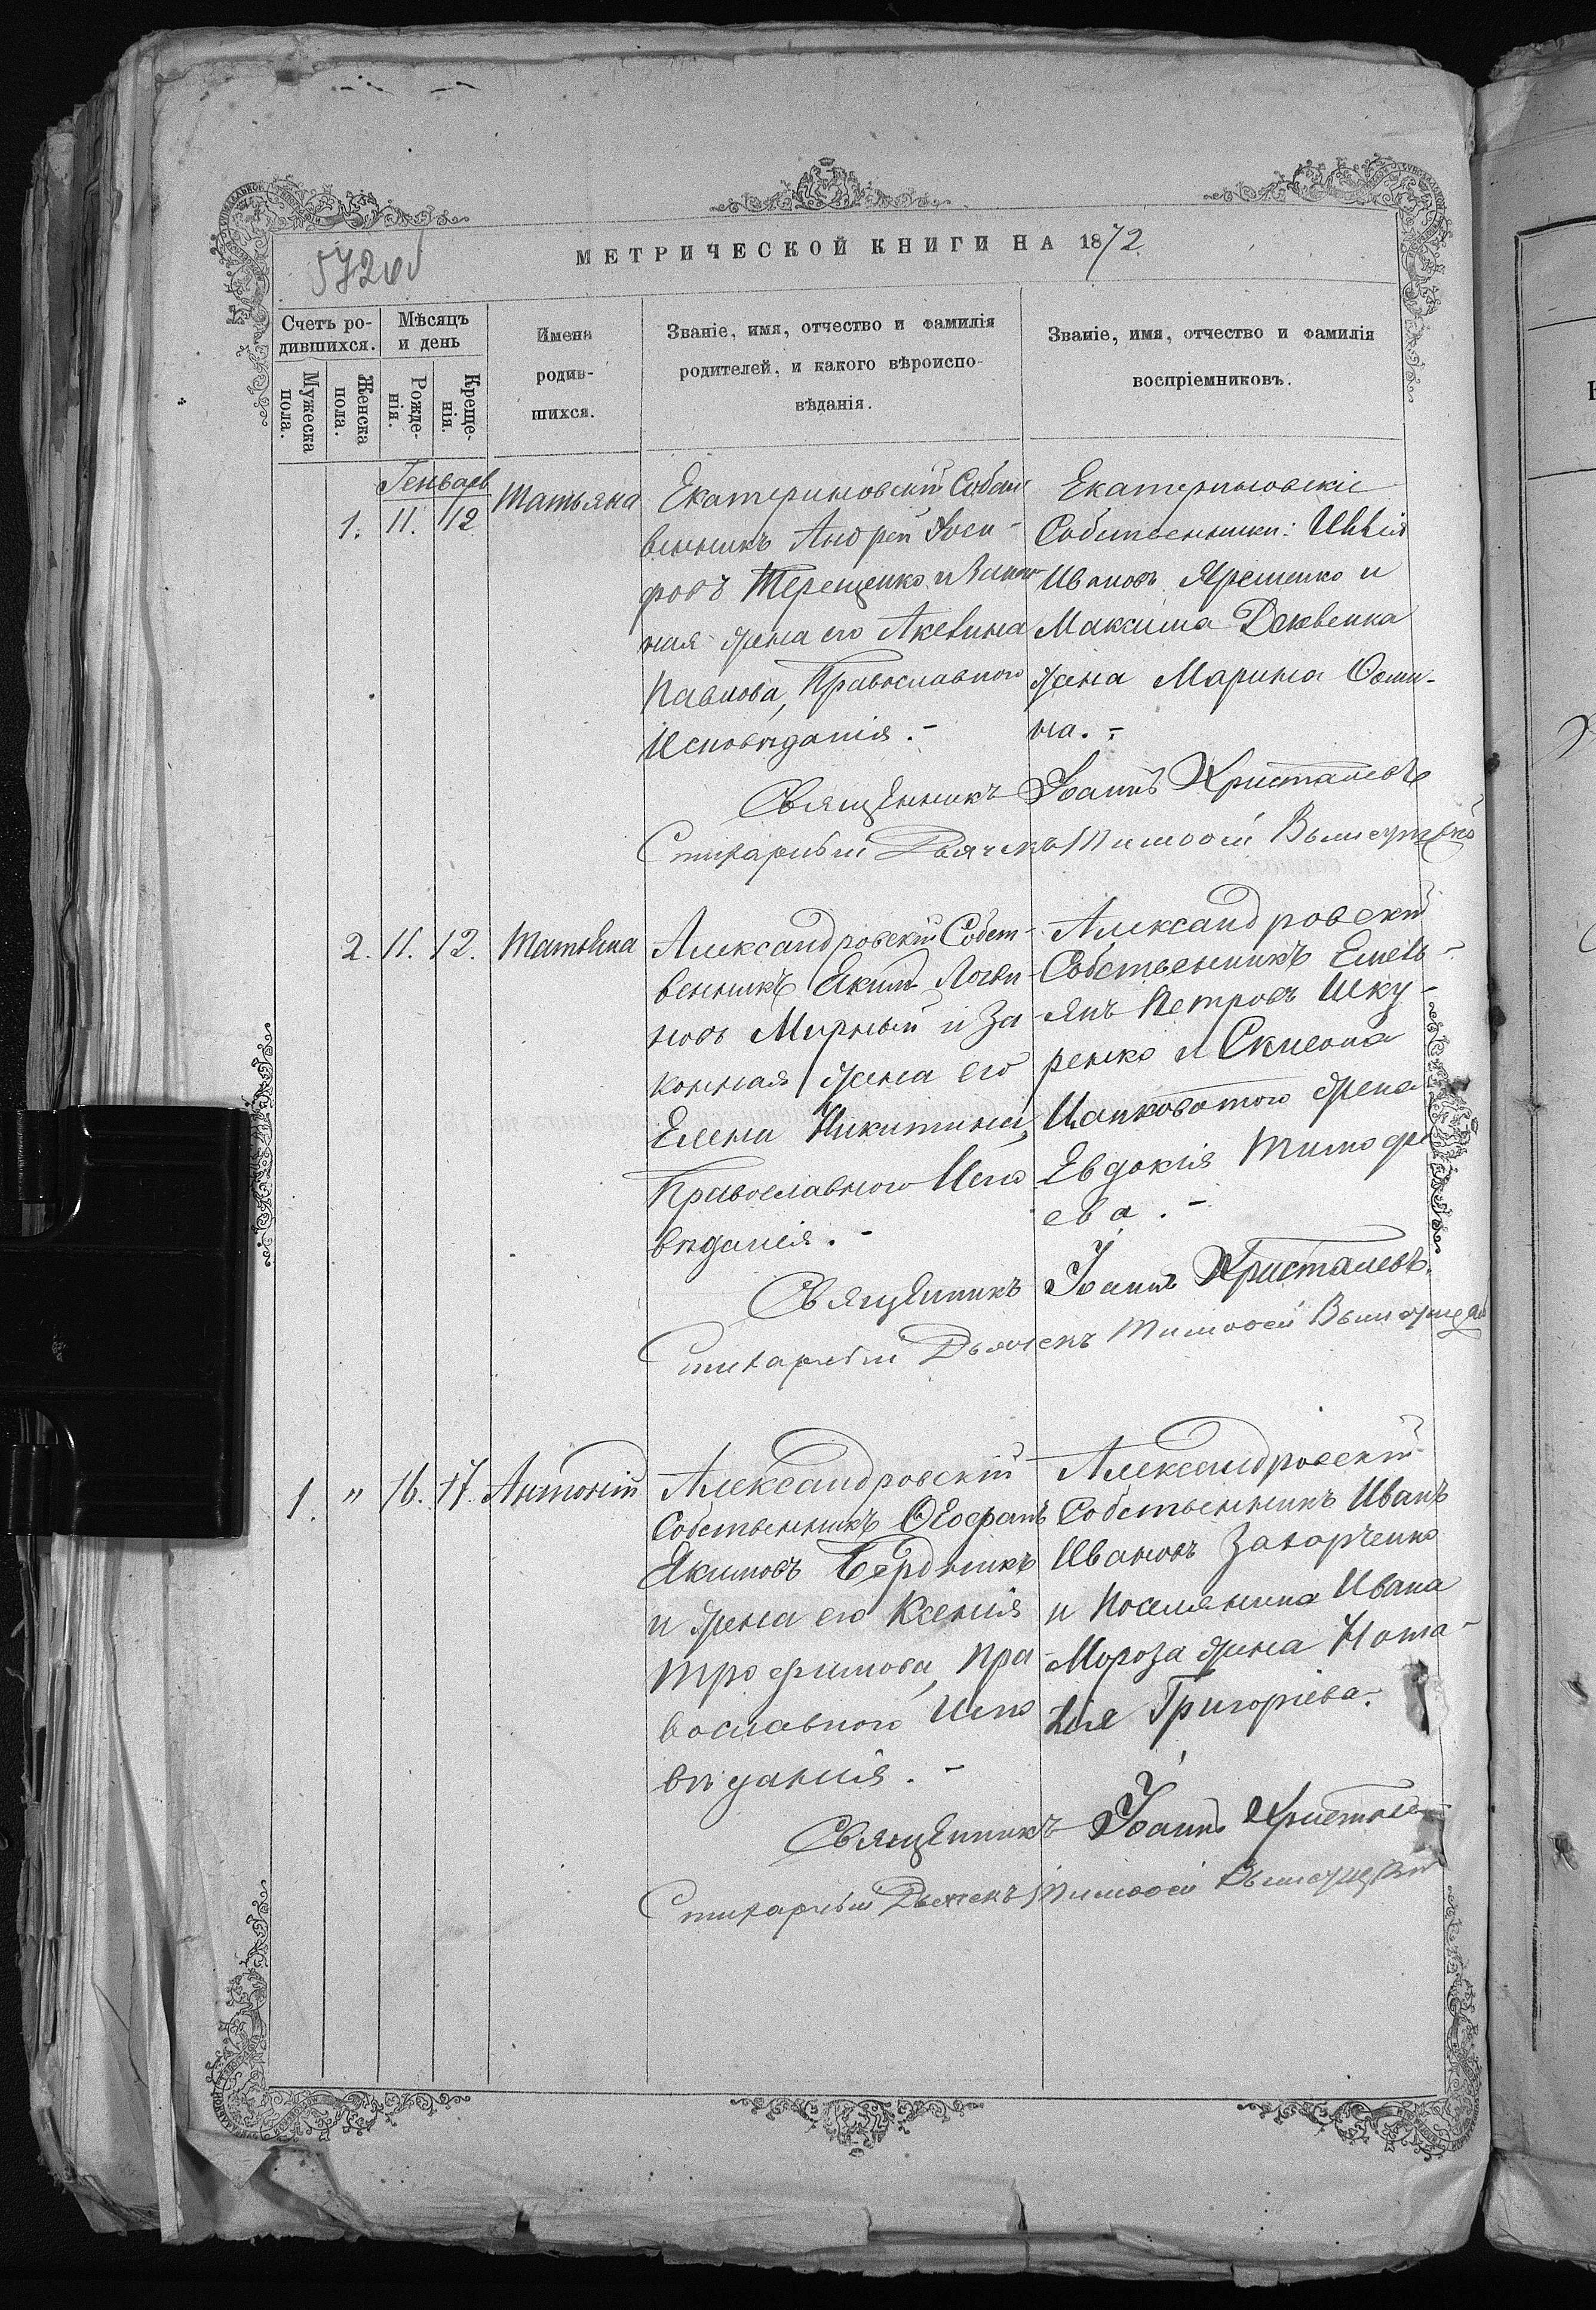 572 об
МЕТРИЧЕСКОЙ КНИГИ НА 1872
Счетъ ро-
дившихся.
Мѣсяцъ
и день
Мужеска
пола.
Женска
пола.
Рожде-
нія.
Креще-
нія.
Имена
родив-
шихся.
Званіе, имя, отчество и фамилія
родителей, и какого вѣроиспо-
вѣданія.
Званіе, имя, отчество и фамилія
воспріемниковъ.
Генварь
1. 11. 12 Татьяна
Екатериновскій Собст
венникъ Андрей Іоси-
фовъ Терещенко и Закон
ная жена его Акелина
Павлова, Православнаго
Исповѣданія.-
Екатериновскіе
Собственники: Илія
Ивановъ Яременко и
Максима Дековенка
жена Марина Ѳоми-
на.-
Священникъ Іоаннъ Христалевъ
Стихарный Дьячекъ Тимоѳей
2. 11. 12. Татьяна
Александровскій Собст-
венникъ Якимъ Логви-
новъ Мирный и За
конная жена его
Елена Никитина,
Православного Испо
вѣданія.-
Александровскій
Собственникъ Емель-
янъ Петровъ Шку-
ренко и
Цапковатого жена
Евдокія Тимофе
ева.-
Священникъ Іоаннъ Христалевъ.
Стихарный Дьячекъ Тимоѳей
1. " 16. 17. Антоній
Александровскій
Собственникъ Ѳеофанъ
Якимовъ Бердникъ
и жена его Ксенія
Трофимова, Пра
вославного Испо
вѣданія.-
Александровскій
Собственникъ Иванъ
Ивановъ Захарченко
и Поселянина Ивана
Мороза жена Ната-
лія Григоріева.
Священникъ Іоаннъ Христале
Стихарный Дьячекъ Тимоѳей